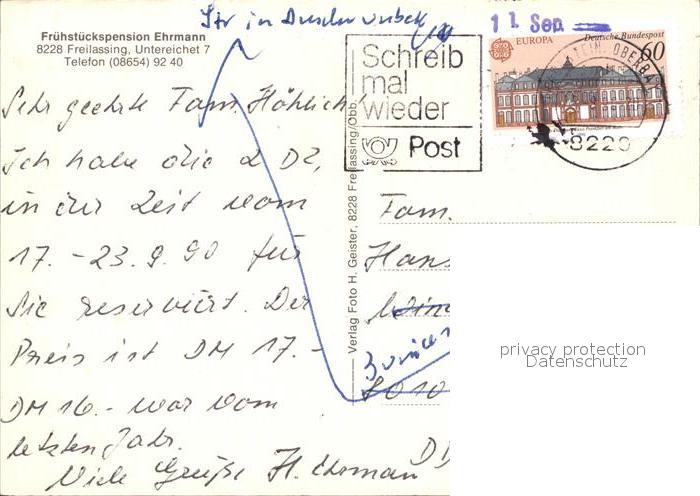 Str in Dresden unbek
Frühstückspension Ehrmann
8228 Freilassing, Untereichet 7
Telefon (08654) 92 40
Schreib
mal
wieder
Post
11. Sep.
EUROPA
Deutsche Bundespost
60
8220
Sehr geehrte Fam. Höhlich
Ich habe die 2 DZ,
in der Zeit vom
17. - 23. 9. 90 für
Sie reserviert. Der
Preis ist DM 17.-
DM 16.- war vom
letzten Jahr.
Viele Grüße H. Ehrmann
Verlag Foto H. Geister, 8228 Freilassing/Obb.
Fam.
Hans
zurück
8010
DD
privacy protection
Datenschutz